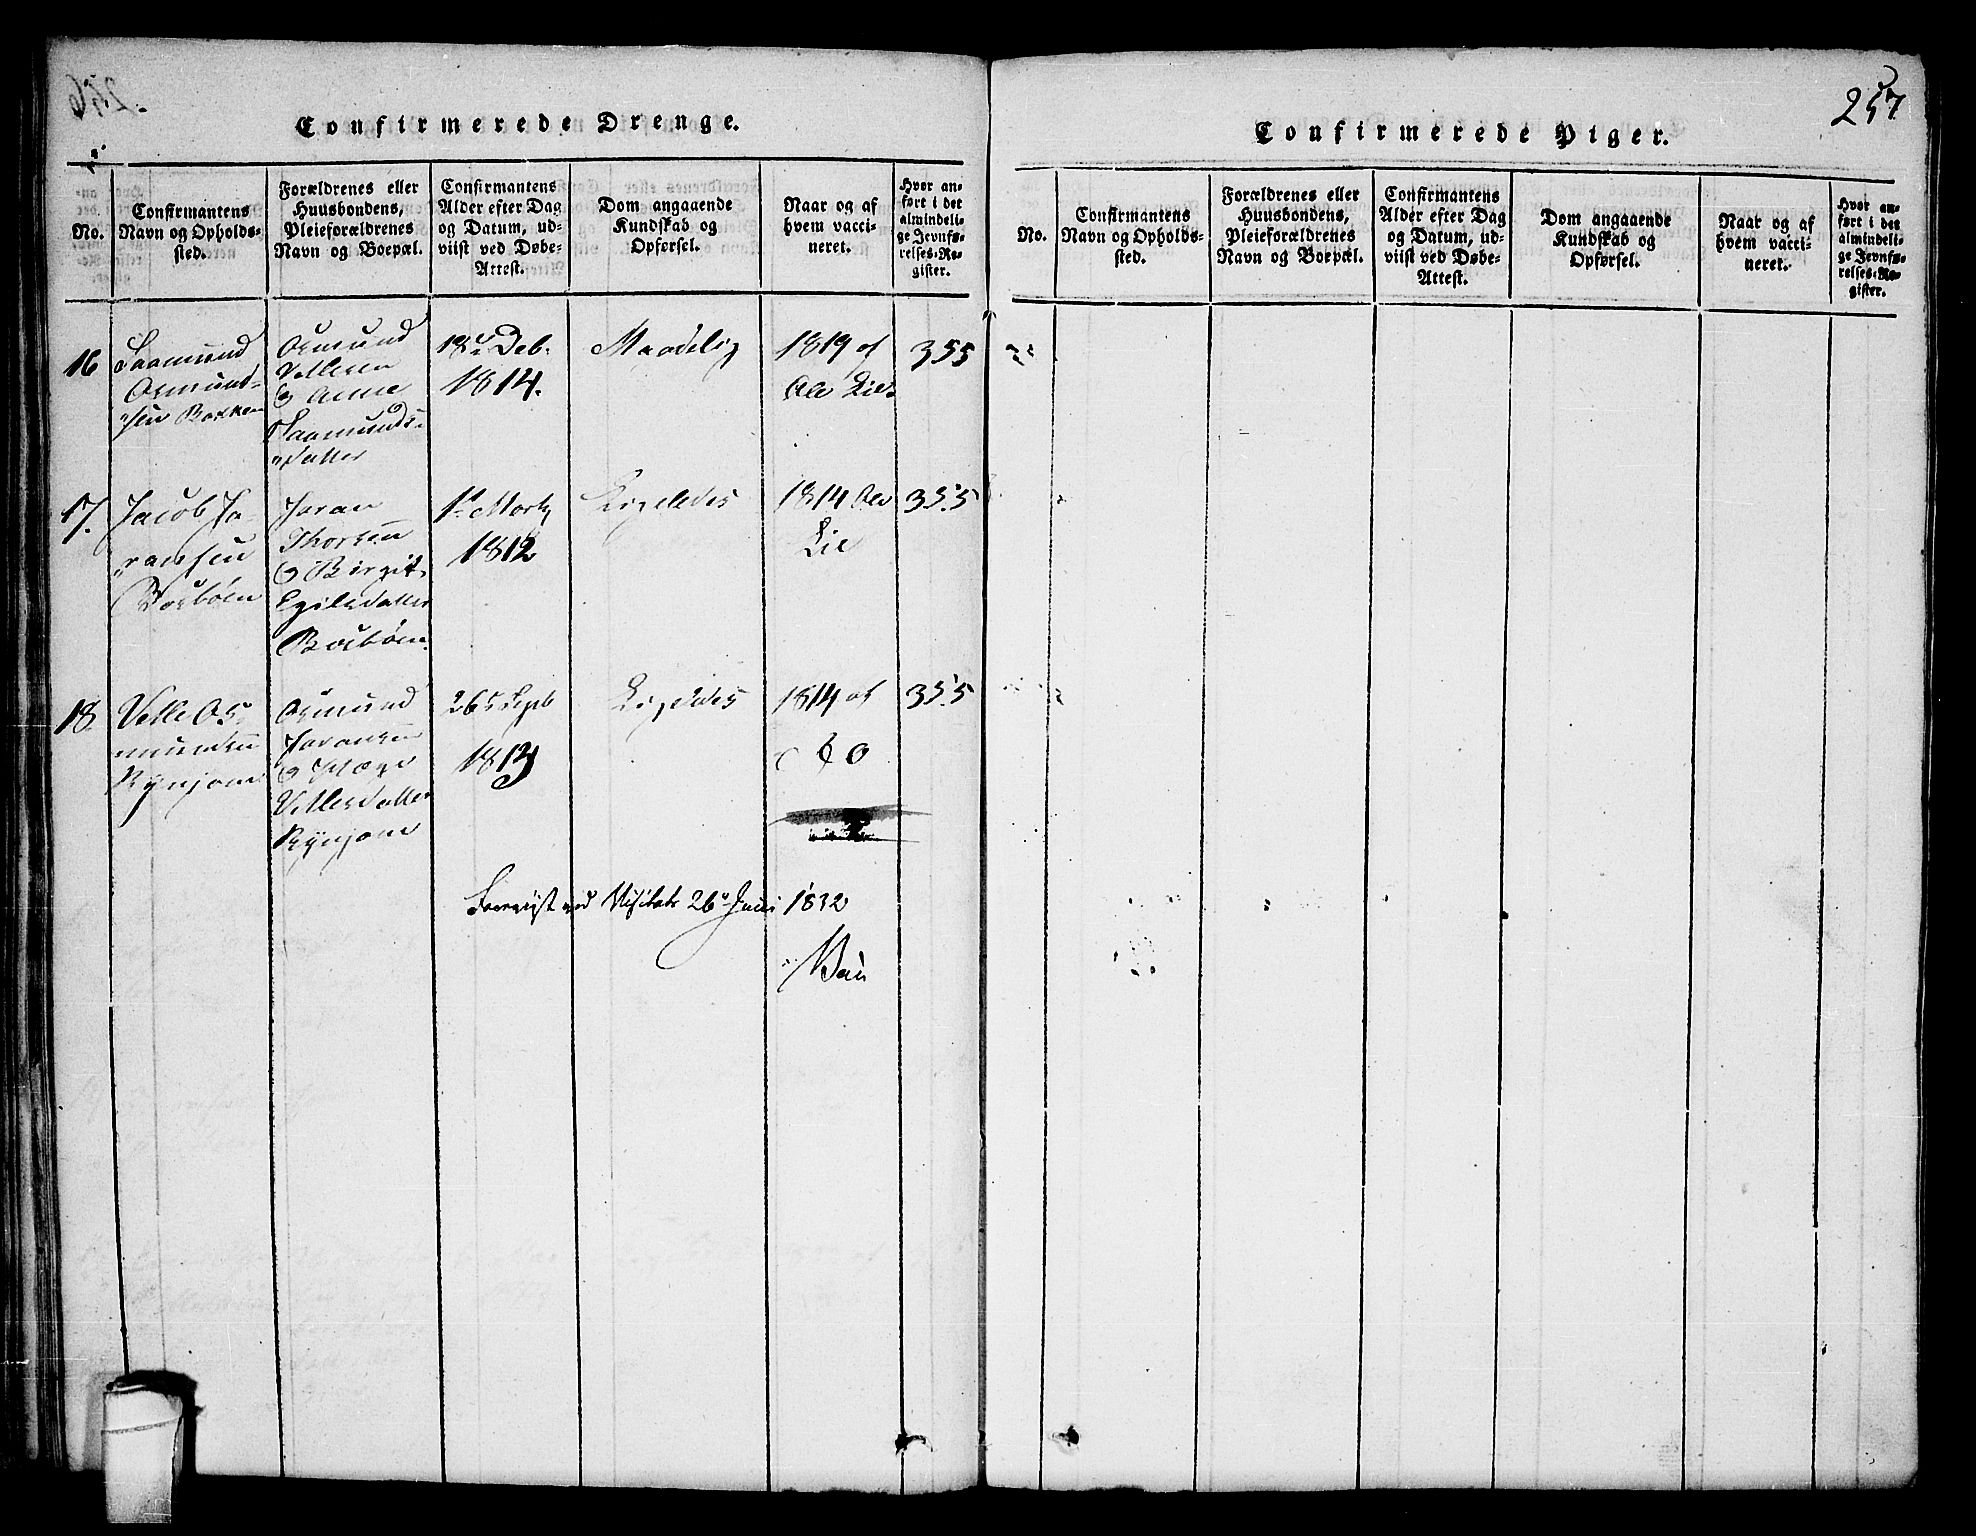 257
Confirmerede Drenge.
No.
Confirmantens
Navn og Opholds-
sted.
Forældrenes eller
Huusbondens,
Pleieforældrenes
Navn og Boepæl.
Confirmantens
Alder efter Dag
og Datum, ud-
viist ved Døbe-
Attest.
Dom angaaende
Kundskab og
Opførsel.
Naar og af
hvem vacci-
neret.
Hvor an-
ført i det
almindeli-
ge Jevnfø-
relses-Re-
gister.
16
Saamund
Osmund-
sen Bakken
Osmund
Vellesen
& Anne
Saamunds-
datter
18de Deb.
1814.
Maadelig
1819 af
Ole Lie
355
17.
Jacob Jo-
ransen
Bosbøen
Joran
Thorsen
& Birgit
Egilsdatter
Bosbøen.
1ste Marty
1812
Ligeledes
1814 Ole
Lie
355
18
Velle Os-
mundsen
Rynjom
Osmund
Joransen
&
Vellesdatter
Rynjom
26de Sept
1813
Ligeledes
1814 af
do
355
Foreviist ved Visitats 26de Juni 1832
Confirmerede Piger.
No.
Confirmantens
Navn og Opholds-
sted.
Forældrenes eller
Huusbondens,
Pleieforældrenes
Navn og Boepæl.
Confirmantens
Alder efter Dag
og Datum, ud-
viist ved Døbe-
Attest.
Dom angaaende
Kundskab og
Opførsel.
Naar og af
hvem vacci-
neret.
Hvor an-
ført i det
almindeli-
ge Jevnfø-
relses-Re-
gister.